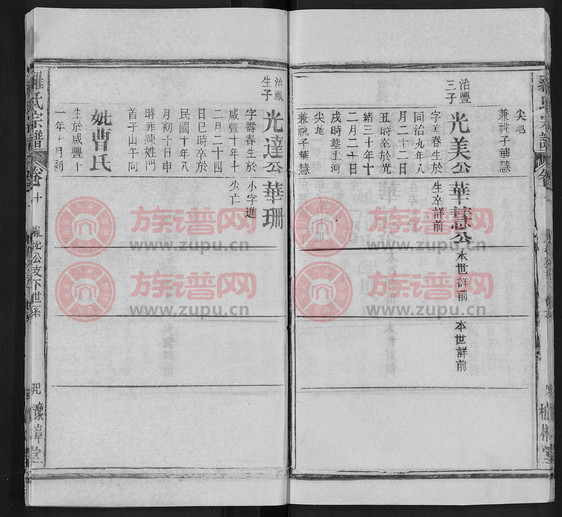 尖地
兼祧子華慧
治豐
三子
光美公
字壽春生於
同治九年八
月二十二日
丑時卒於光
緒三十年十
二月二十日
戌時墓土河
尖地
兼祧子華慧
華慧公
生卒詳前
本世詳前
本世詳前
治鳳
生子
光達公
字壽春生於
咸豐十年十
二月二十四
日巳時卒於
民國十年八
月初十日申
時葬陳姓門
首子山午向
妣曹氏
生於咸豐十
一年十月初
華珊
小字進
尖亡
羅氏宗譜
卷十
公支下世系
豫章堂
族谱网
www.zupu.cn
族谱网
www.zupu.cn
族谱网
www.zupu.cn
族谱网
www.zupu.cn